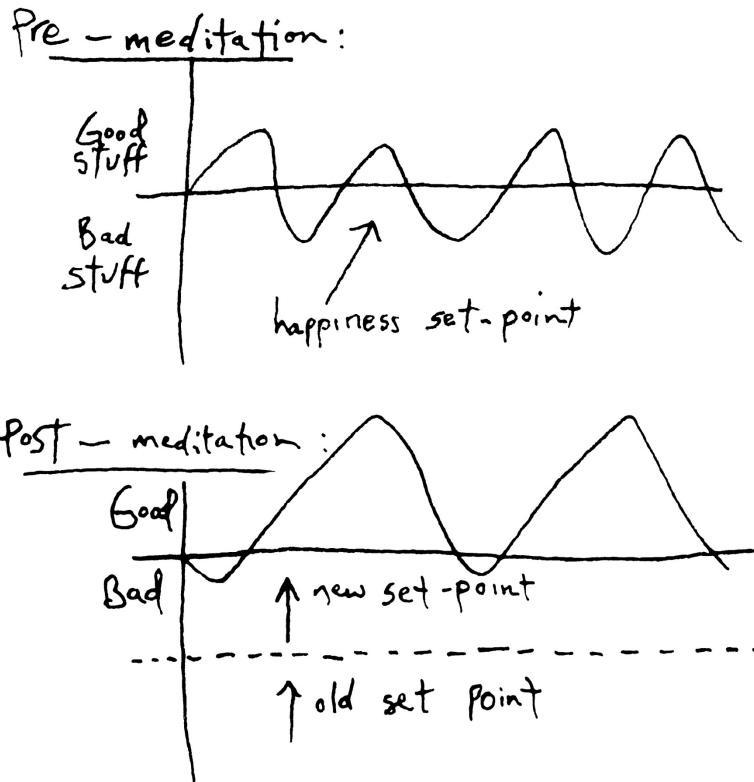 Pre - meditation:
Good
stuff
Bad
stuff
happiness set-point
Post - meditation:
Good
Bad
new set-point
old set point